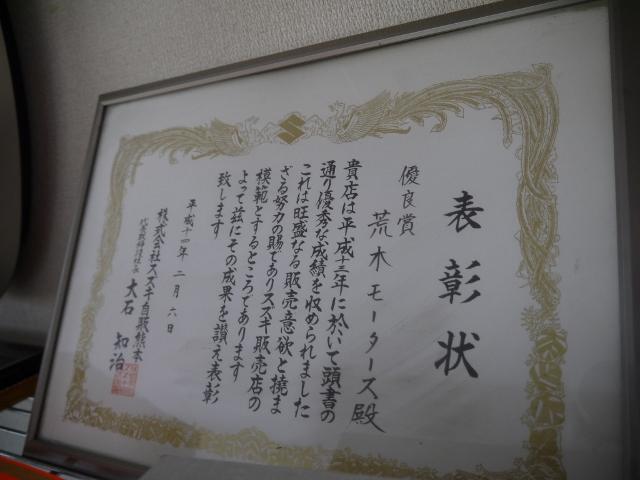 表彰状
優良賞
荒木モータース殿
貴店は平成十三年に於いて頭書の
通り優秀な成績を収められました
これは旺盛なる販売意欲と撓ま
ざる努力の賜でありスズキ販売店の
模範とするところであります
よって茲にその成果を讃え表彰
致します
平成十四年二月六日
株式会社スズキ自販熊本
代表取締役社長 大石知治